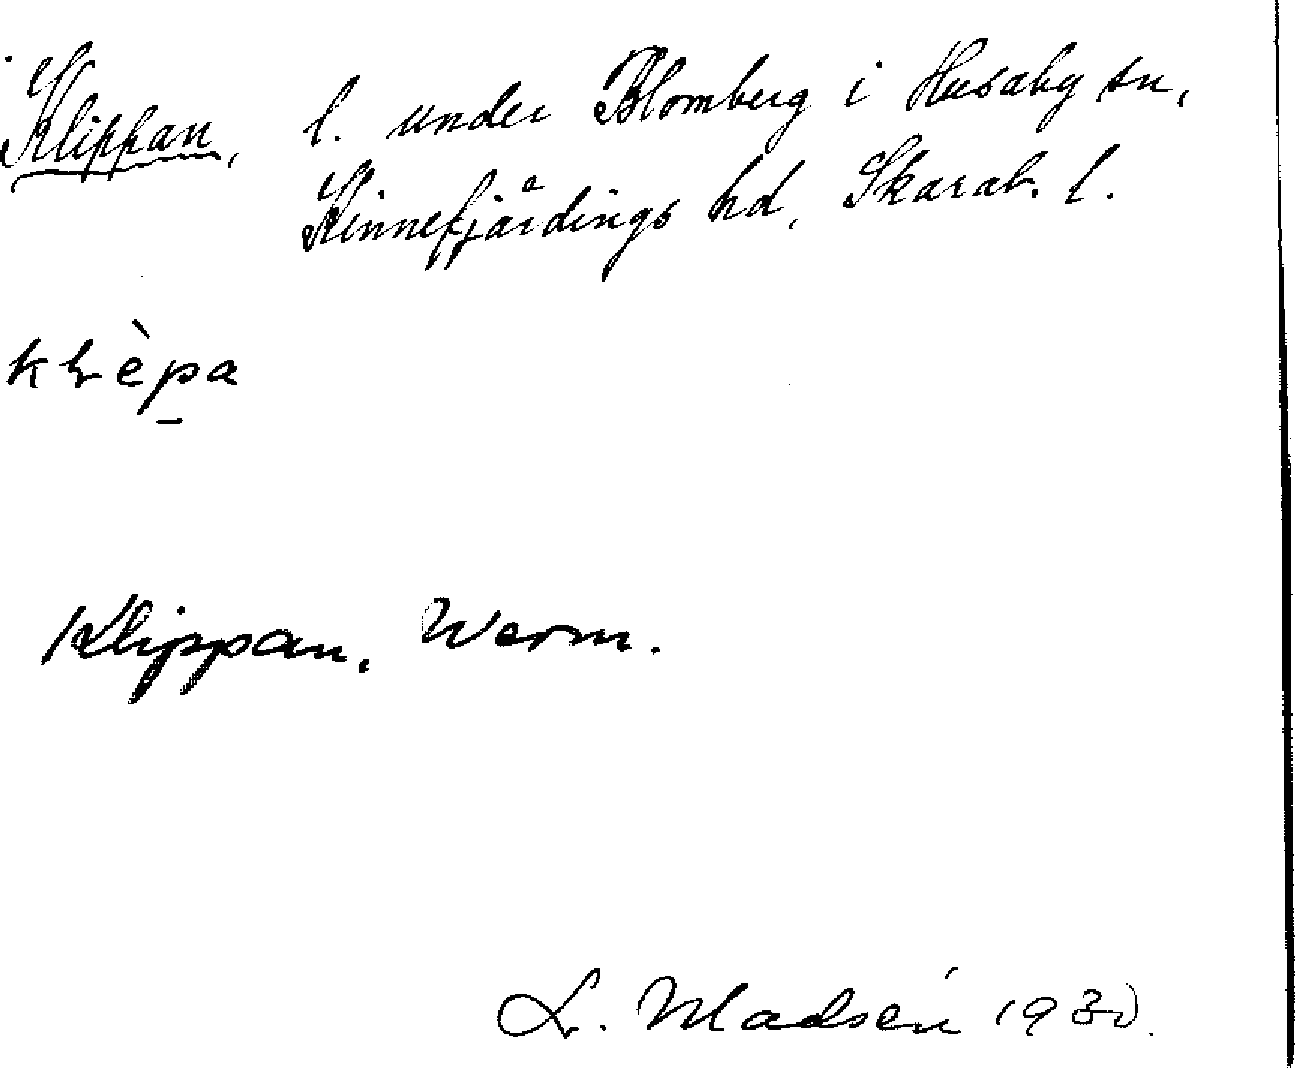 Klippan, l. under Blomberg i Husaby sn,
Kinnefjårdings hd, Skarab. l.
klèpa
Klippan. Werm.
L. Madsén 1930.